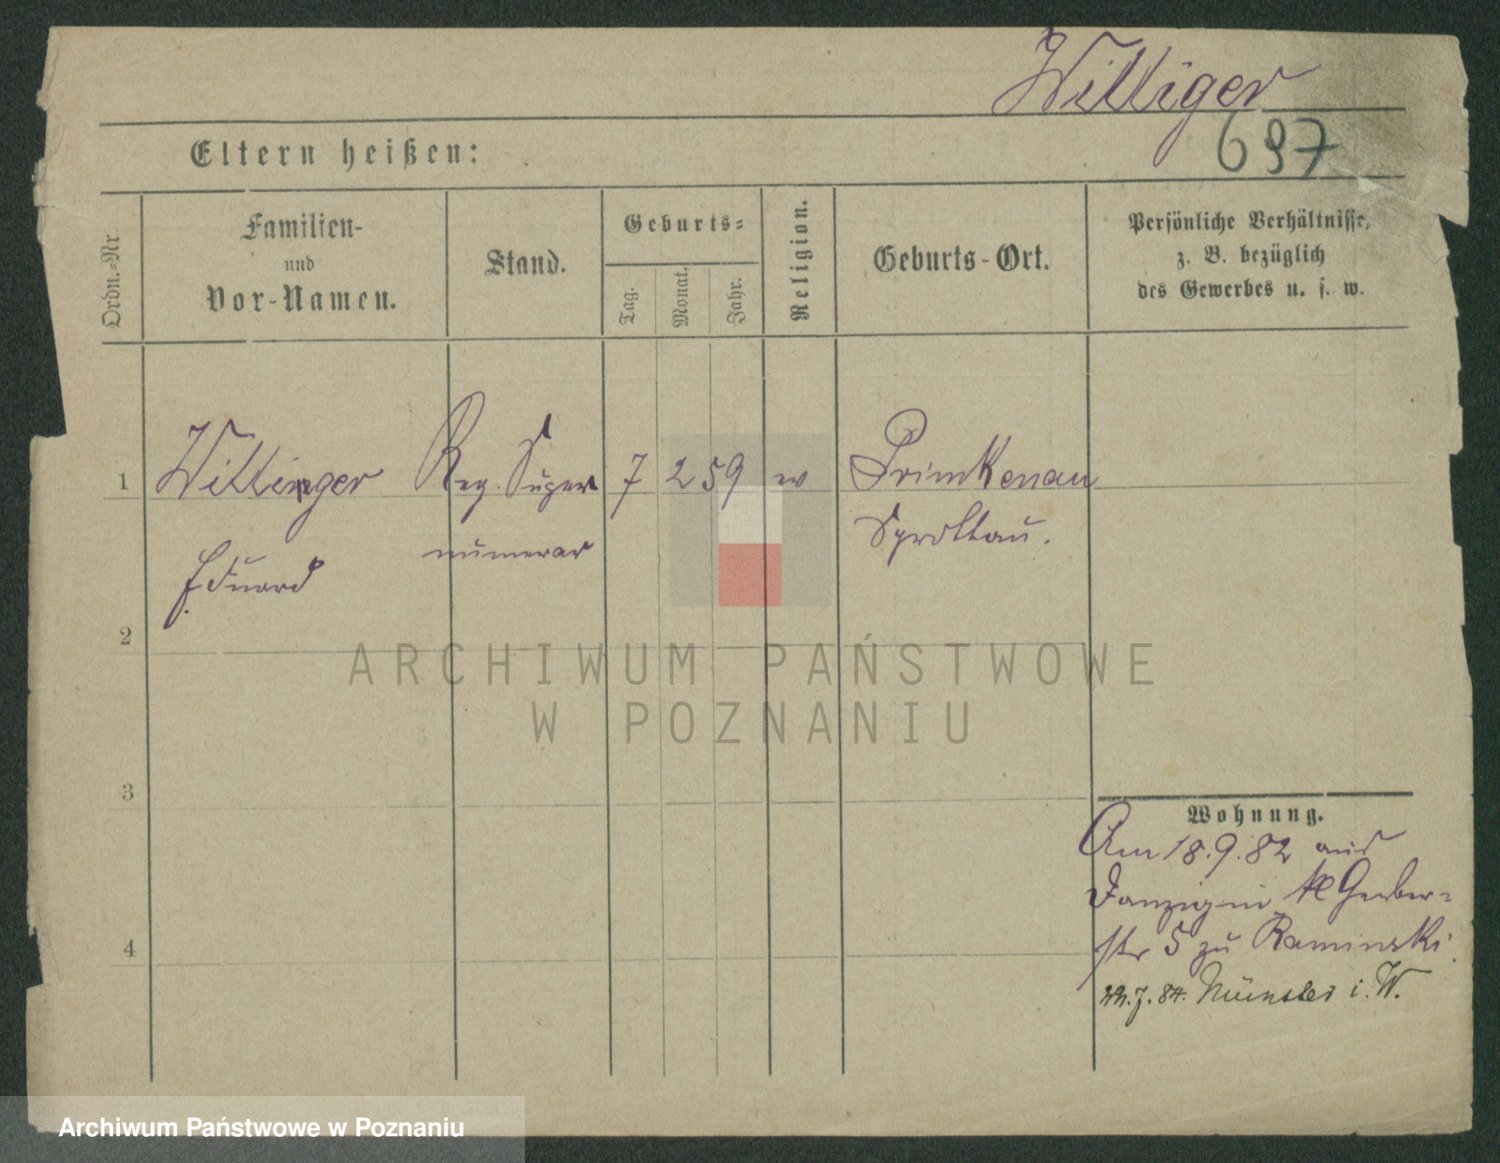 Williger
697
Eltern heißen:
Ordn.-Nr.
Familien-
und
Vor-Namen.
Stand.
Geburts-
Tag.
Monat.
Jahr.
Religion.
Geburts-Ort.
Persönliche Verhältnisse,
z. B. bezüglich
des Gewerbes u. s. w.
1 Willinger Reg. Super 7 2 59 ev Primkenau
numerar Sprottau.
Eduard
2
ARCHIWUM PAŃSTWOWE
W POZNANIU
3
Wohnung.
Am 18.9.82 aus
Danzig in kl Gerber-
4
str 5 zu Kaminski.
22.7.84. Münster i. W.
Archiwum Państwowe w Poznaniu